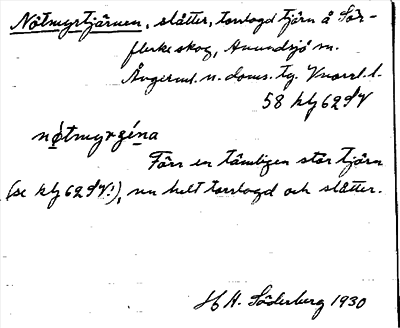 Nötmyrtjärnen, slåtter, torrlagd tjärn å Sör-
flerke skog, Anundsjö sn.
Ångerml. n. doms. tg. Vnorrl. l.
58 hlj 62 dV
nǿtmyrgéna
Förr en tämligen stor tjärn
(se hlj 62 dV!), nu helt torrlagd och slåtter.
H. H. Söderberg 1930